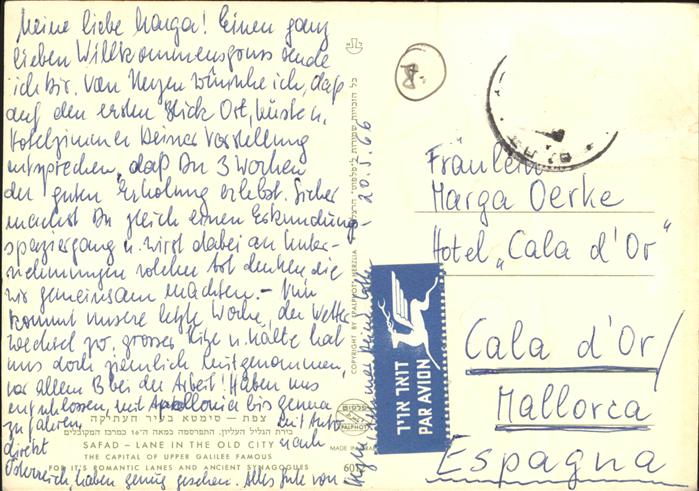 Meine liebe Marga! Einen ganz
lieben Willkommensgruss sende
ich Dir. Von Herzen wünsche ich, daß
auf den ersten Blick Ort, Küste u.
Hotelzimmer Deiner Vorstellung
entsprechen, daß Du 3 Wochen
der guten Erholung erlebst. Sicher
machst Du gleich einen Erkundung
spaziergang u. wirst dabei an Unter-
nehmungen solcher Art denken die
wir gemeinsam machten. - Nun
kommt unsere letzte Woche, der Wetter
wechsel zw. grosser Hitze u. Kälte hat
uns doch ziemlich mitgenommen,
vor allem B bei der Arbeit! Haben uns
entschlossen, mit Apollonia bis Genua
zu fahren mit Auto
direkt nach
Österreich, haben genug gesehen. Alles Gute von
immer Deine
20.5.66
צפת - סימטא בעיר העתיקה
בירת הגליל העליון. התפרסמה במאה ה-16 כמרכז המקובלים
SAFAD – LANE IN THE OLD CITY
THE CAPITAL OF UPPER GALILEE FAMOUS
FOR IT'S ROMANTIC LANES AND ANCIENT SYNAGOGUES
כל הזכויות שמורות ל"פלפוט" הרצליה
COPYRIGHT BY PALPHOT HERZLIA
פלפוט
PALPHOT
MADE IN ISRAEL
דואר אויר
PAR AVION
Fräulein
Marga Oerke
Hotel „Cala d'Or"
Cala d'Or/
Mallorca
Espagna